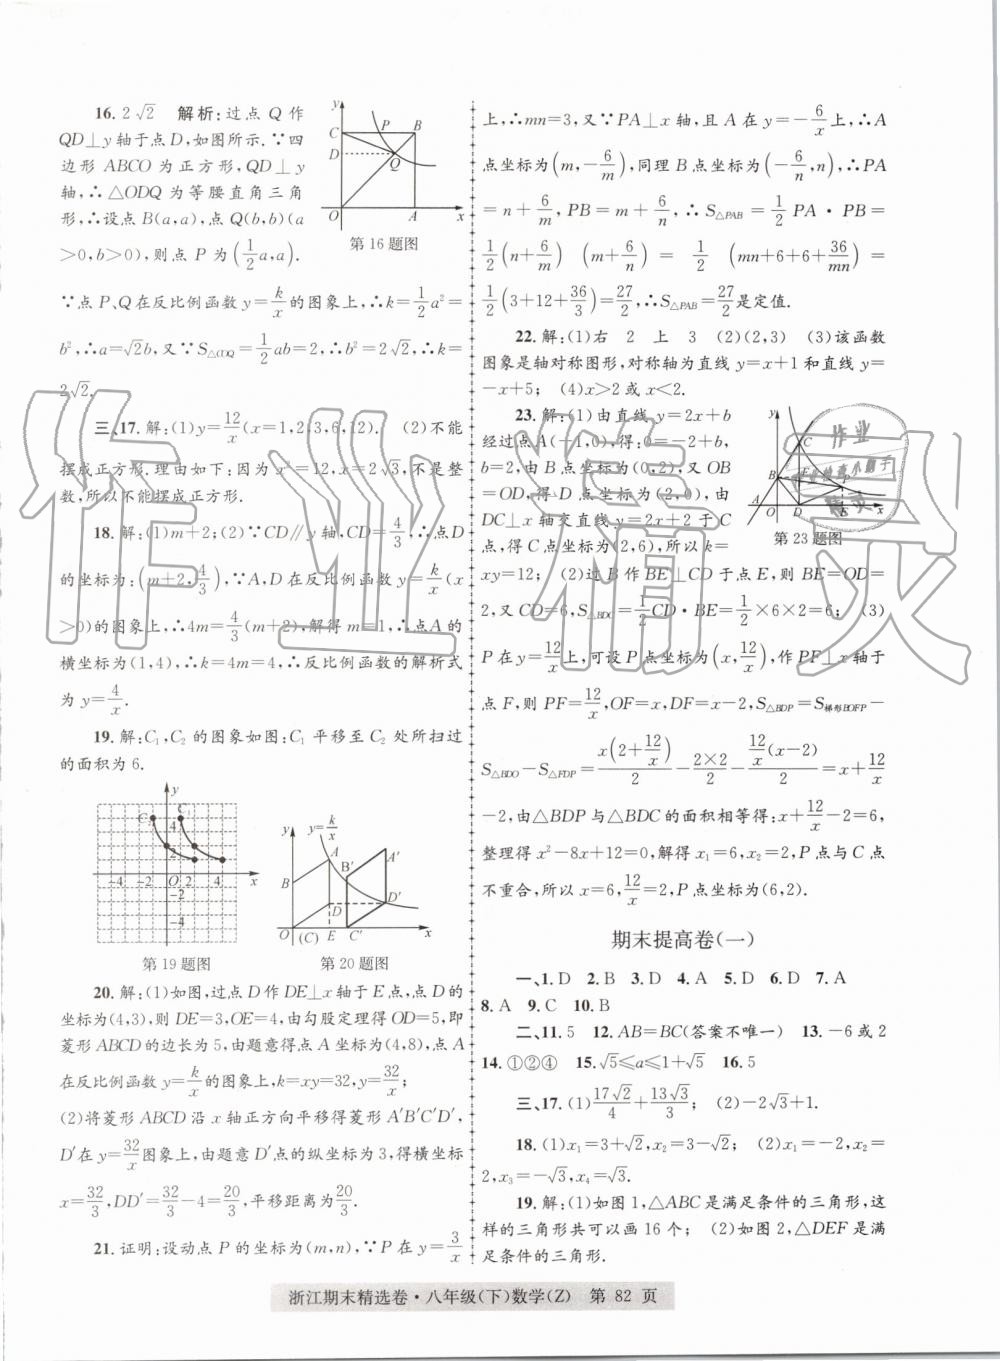 16. 2√2　解析:过点 Q 作
QD⊥y轴于点D,如图所示.∵四
边形 ABCO 为正方形,QD⊥y
轴,∴△ODQ 为等腰直角三角
形,∴设点B(a,a),点Q(b,b)(a
>0,b>0),则点 P 为(1/2a,a).
y C P B D Q O A x
第16题图
∵点P、Q在反比例函数y=k/x的图象上,∴k=1/2a²=
b²,∴a=√2b,又∵S△CDQ=1/2ab=2,∴b²=2√2,∴k=
2√2.
三、17.解:(1)y=12/x(x=1,2,3,6,12).　(2)不能
摆成正方形.理由如下:因为x²=12,x=2√3,不是整
数,所以不能摆成正方形.
18.解:(1)m+2;(2)∵CD∥y轴,CD=4/3,∴点D
的坐标为:(m+2,4/3),∵A,D在反比例函数y=k/x(x
>0)的图象上,∴4m=4/3(m+2),解得m=1,∴点A的
横坐标为(1,4),∴k=4m=4,∴反比例函数的解析式
为y=4/x.
19.解:C₁,C₂的图象如图:C₁平移至C₂处所扫过
的面积为6.
第19题图
y y=k/x A B′ A′ B D D′ O (C) E C′ x
第20题图
20.解:(1)如图,过点D作DE⊥x轴于E点,点D的
坐标为(4,3),则DE=3,OE=4,由勾股定理得OD=5,即
菱形ABCD的边长为5,由题意得点A坐标为(4,8),点A
在反比例函数y=k/x的图象上,k=xy=32,y=32/x;
(2)将菱形ABCD沿x轴正方向平移得菱形A′B′C′D′,
D′在y=32/x图象上,由题意D′点的纵坐标为3,得横坐标
x=32/3,DD′=32/3-4=20/3,平移距离为20/3.
21.证明:设动点P的坐标为(m,n),∵P在y=3/x
上,∴mn=3,又∵PA⊥x轴,且A在y=-6/x上,∴A
点坐标为(m,-6/m),同理B点坐标为(-6/n,n),∴PA
=n+6/m,PB=m+6/n,∴S△PAB=1/2PA·PB=
1/2(n+6/m)(m+6/n)=1/2(mn+6+6+36/mn)=
1/2(3+12+36/3)=27/2,∴S△PAB=27/2是定值.
22.解:(1)右　2　上　3　(2)(2,3)　(3)该函数
图象是轴对称图形,对称轴为直线y=x+1和直线y=
-x+5;　(4)x>2或x<2.
23.解:(1)由直线y=2x+b
经过点A(-1,0),得:0=-2+b,
b=2,由B点坐标为(0,2),又OB
=OD,得D点坐标为(2,0),由
DC⊥x轴交直线y=2x+2于C
点,得C点坐标为(2,6),所以k=
xy=12;　(2)过B作BE⊥CD于点E,则BE=OD=
2,又CD=6,S△BDC=1/2CD·BE=1/2×6×2=6;　(3)
y C B E P A O D F x
第23题图
P在y=12/x上,可设P点坐标为(x,12/x),作PF⊥x轴于
点F,则PF=12/x,OF=x,DF=x-2,S△BDP=S梯形BOFP-
S△BDO-S△FDP=x(2+12/x)/2-2×2/2-12/x(x-2)/2=x+12/x
-2,由△BDP与△BDC的面积相等得:x+12/x-2=6,
整理得x²-8x+12=0,解得x₁=6,x₂=2,P点与C点
不重合,所以x=6,12/x=2,P点坐标为(6,2).
期末提高卷(一)
一、1. D　2. B　3. D　4. C　5. D　6. D　7. A
8. A　9. C　10. B
二、11. 5　12. AB=BC(答案不唯一)　13. -6或2
14. ①②④　15. √5≤a≤1+√5　16. 5
三、17. (1)17√2/4+13√3/3;　(2)-2√3+1.
18. (1)x₁=3+√2,x₂=3-√2;　(2)x₁=-2,x₂=
2,x₃=-√3,x₄=√3.
19.解:(1)如图1,△ABC是满足条件的三角形,这
样的三角形共可以画16个;　(2)如图2,△DEF是满
足条件的三角形.
浙江期末精选卷·八年级(下)数学(Z)　第 82 页
作业精灵